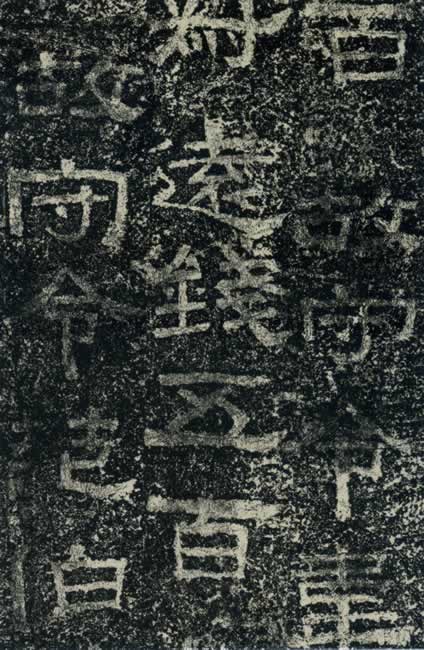 百故守令韋
叔遠錢五百
故守令范伯